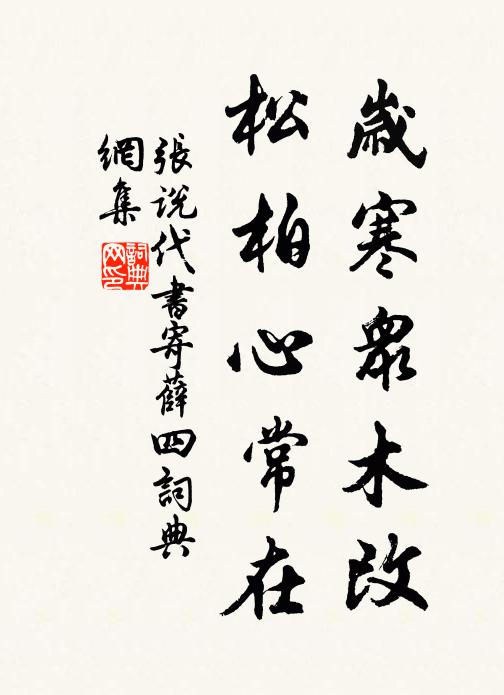 歲寒衆木改
松柏心常在
張説代書寄薛四詞典
網集
詞典网印